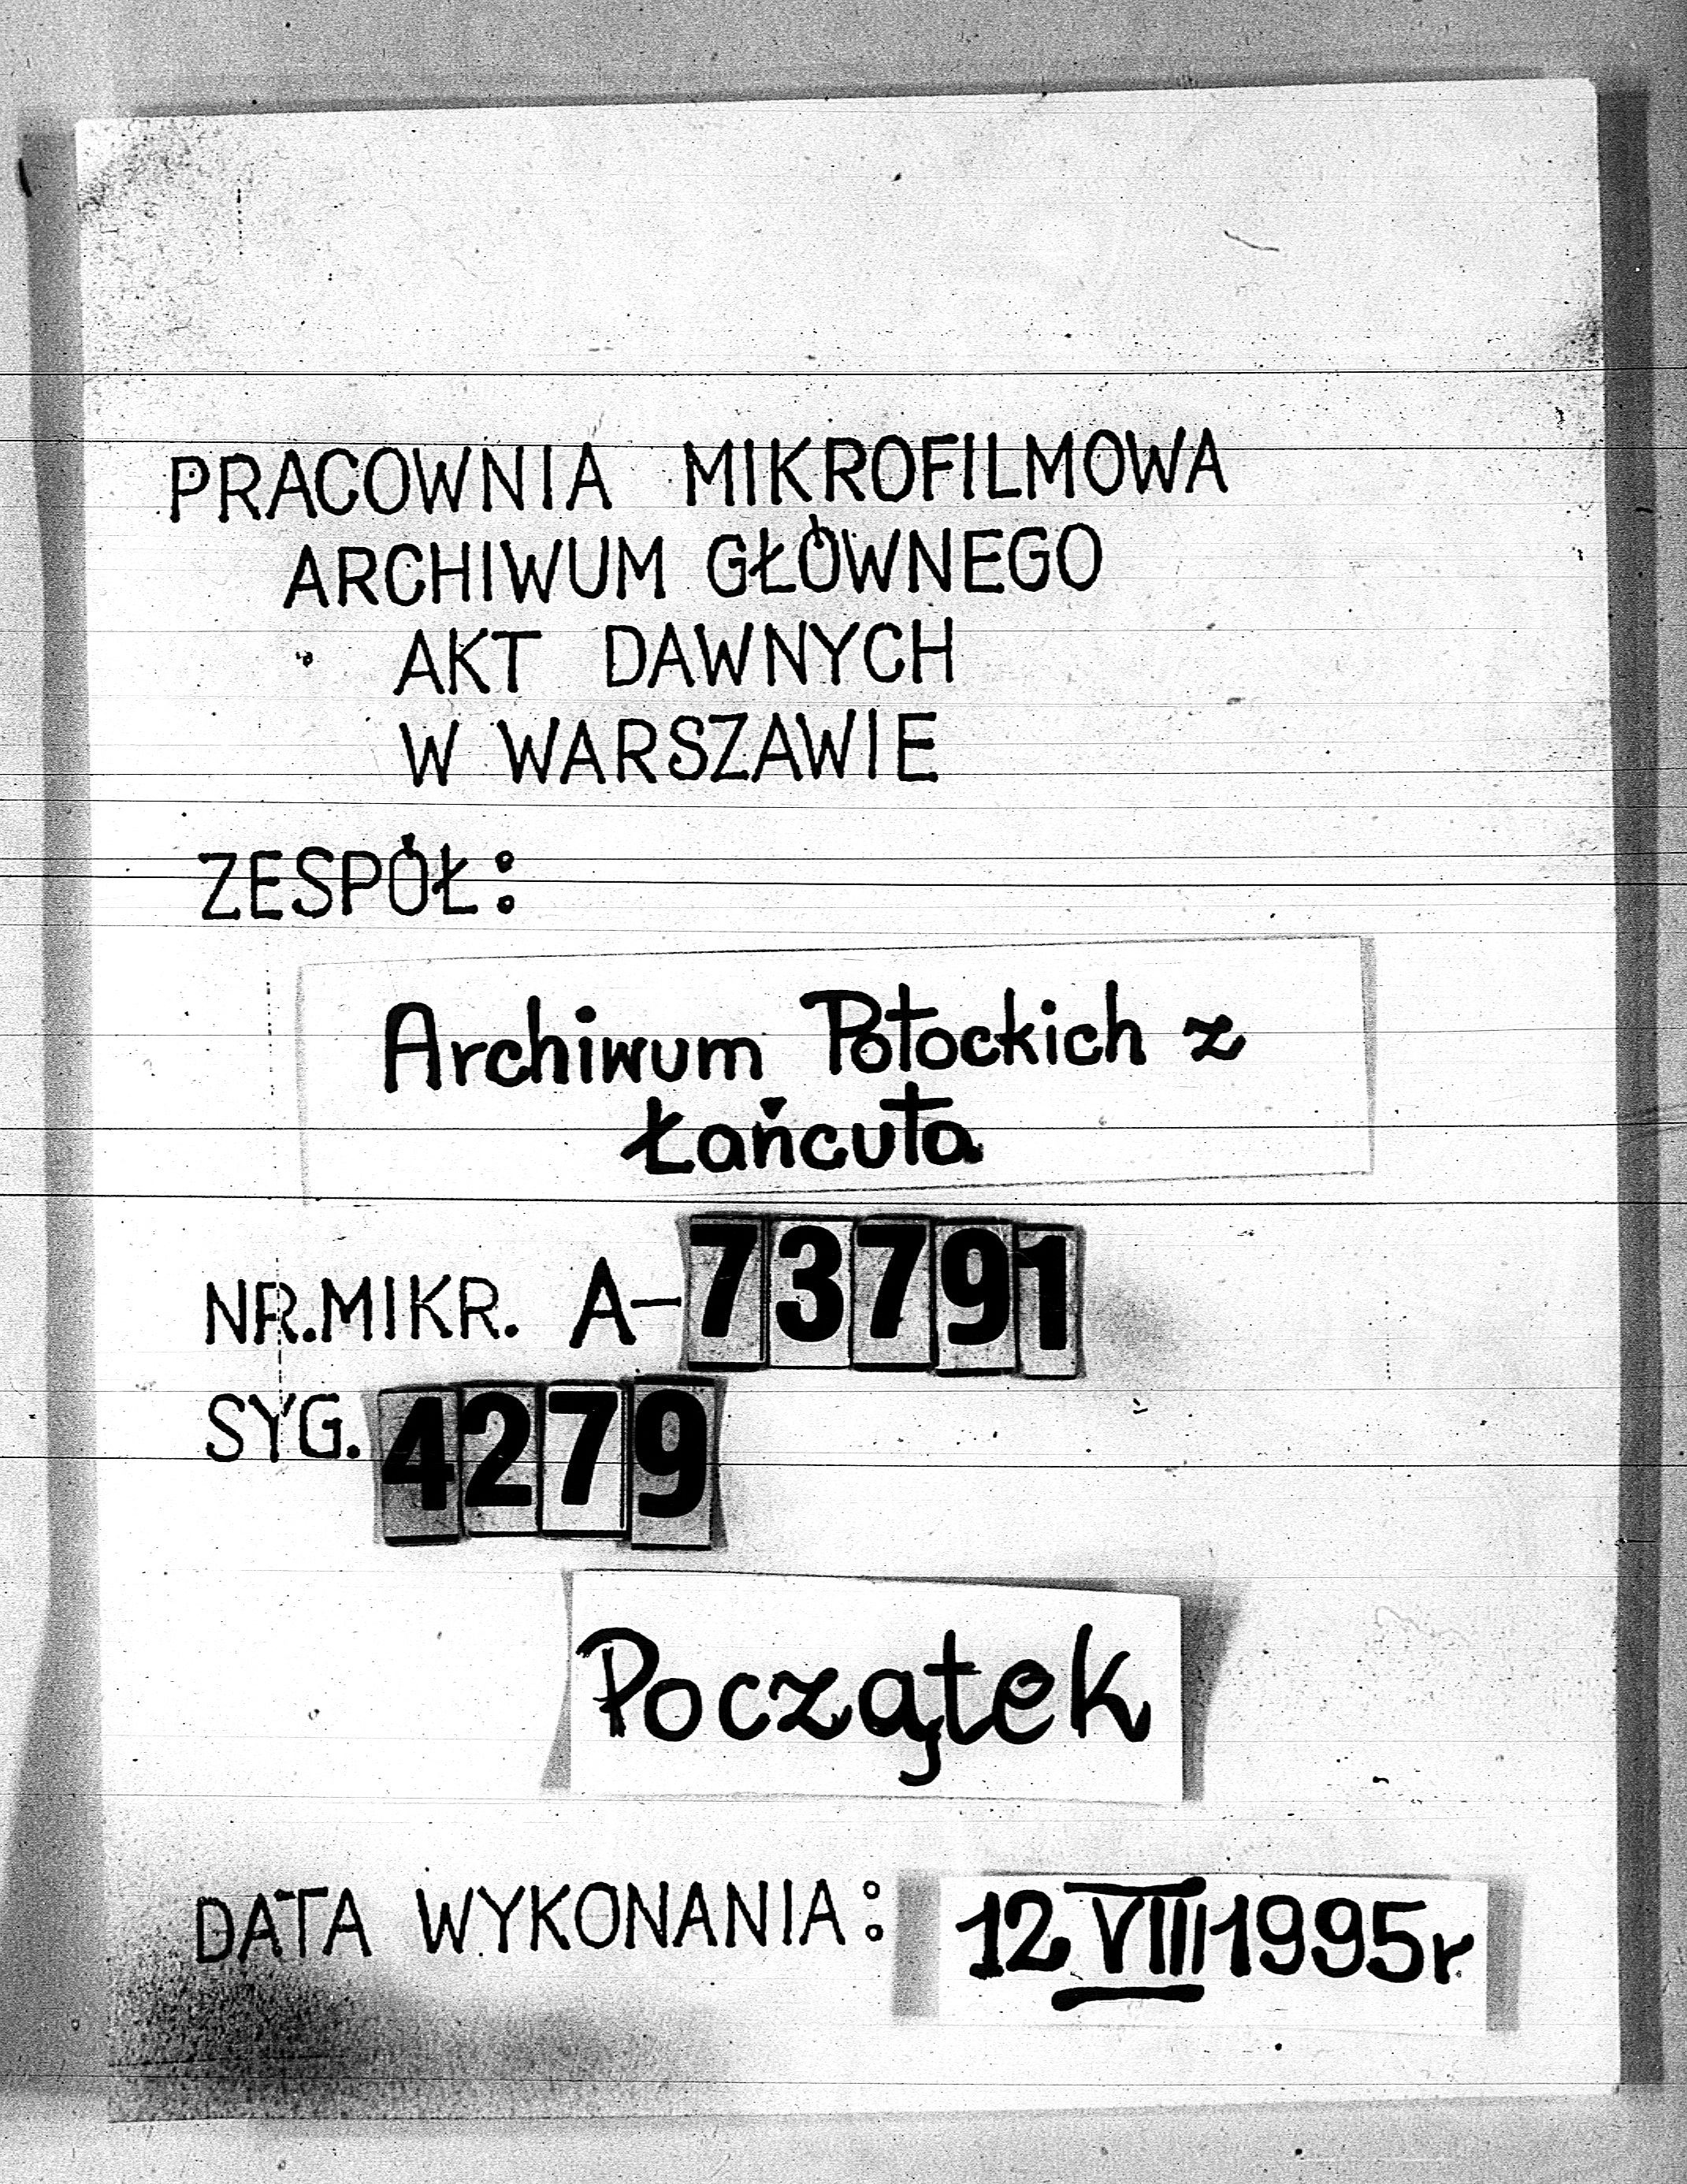 PRACOWNIA MIKROFILMOWA
ARCHIWUM GŁÓWNEGO
AKT DAWNYCH
W WARSZAWIE
ZESPÓŁ:
Archiwum Potockich z
Łańcuta
NR.MIKR. A-73791
SYG. 4279
Początek
DATA WYKONANIA: 12 VIII 1995r